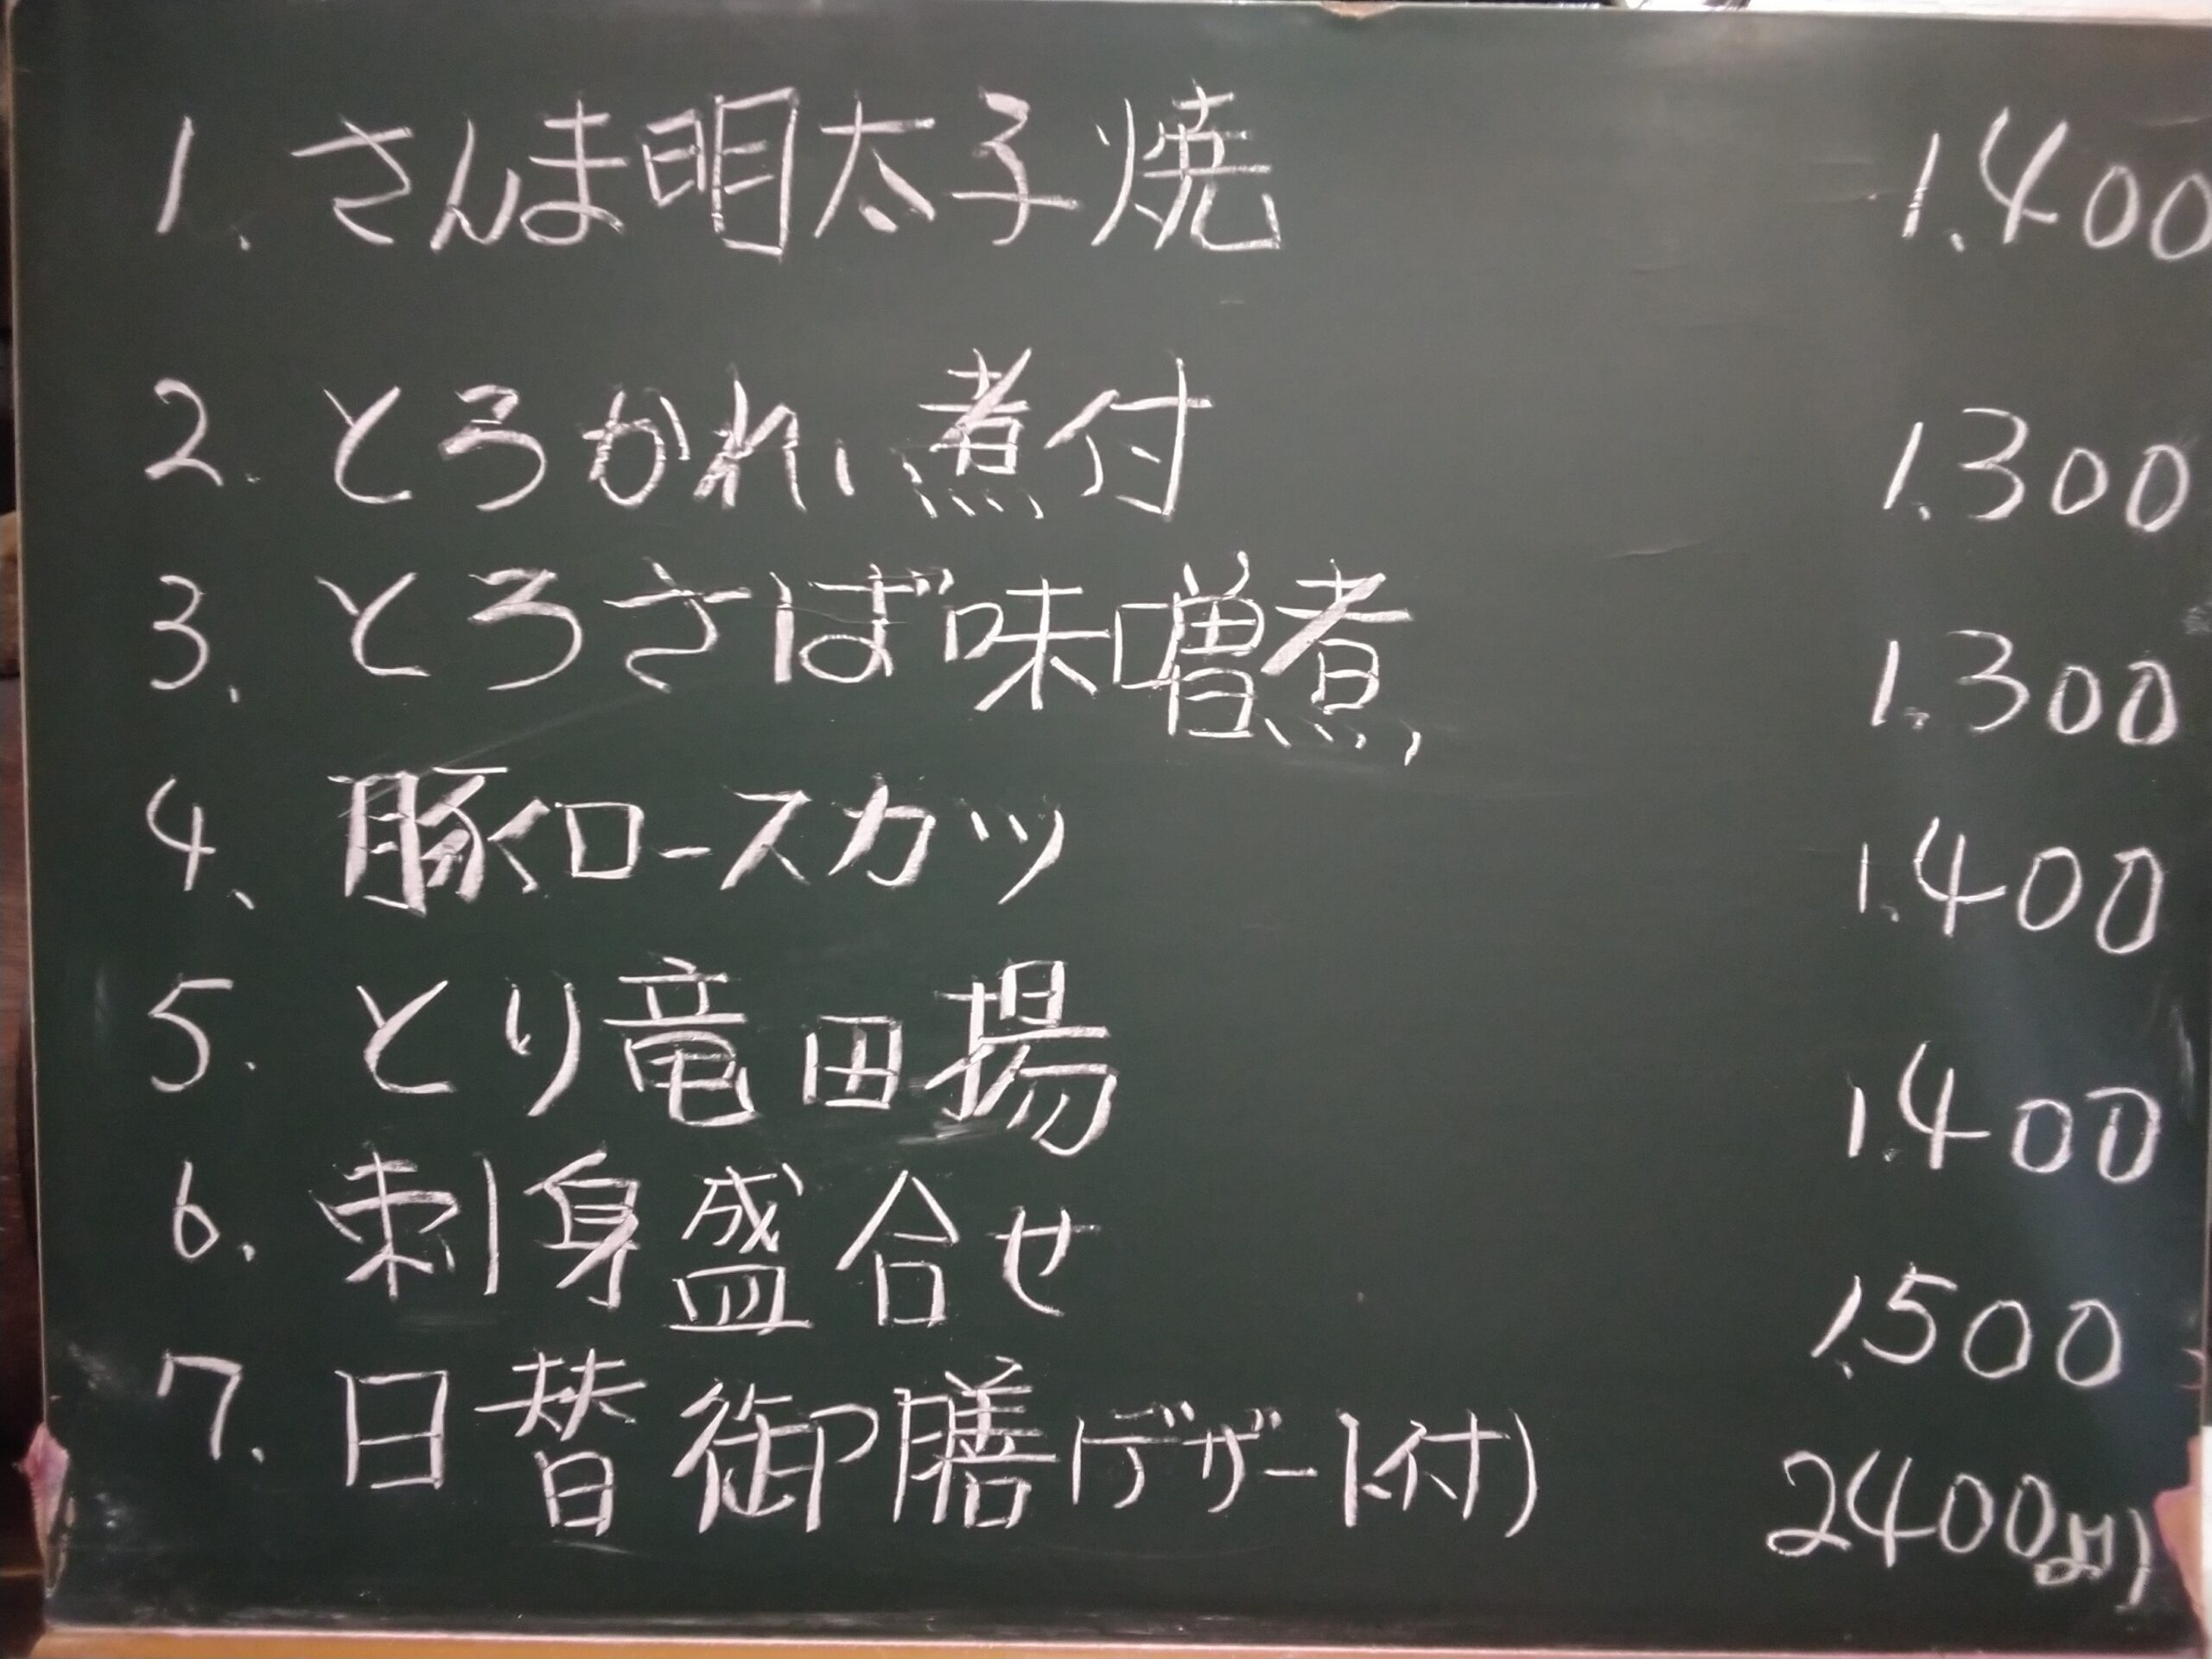 1、さんま明太子焼 1,400
2. とろかれい煮付 1,300
3、とろさば味噌煮 1,300
4、豚ロースカツ 1,400
5. とり竜田揚 1,400
6. 刺身盛合せ 1,500
7. 日替御膳(デザート付) 2400より